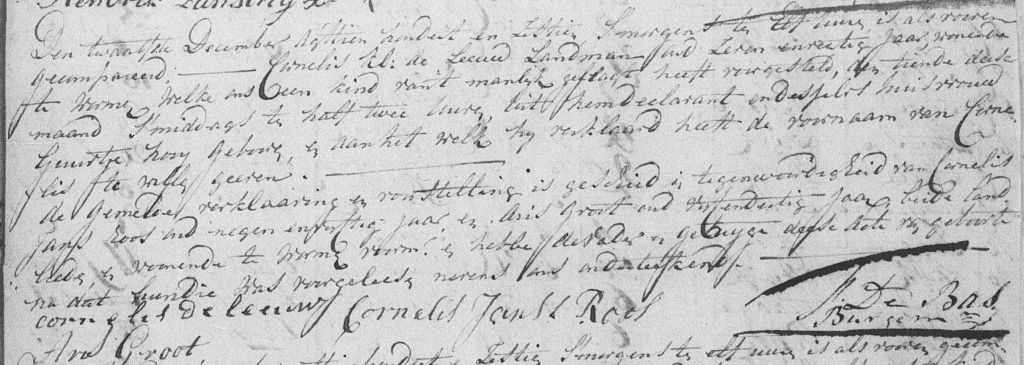 Hendrik Lansing
Den twaalfde December agttien hondert en Zestien S'morgens te Elf uure is als vooren
gecompareerd. Cornelis Kl: de Leeuw Landman oud Seven en veertig Jaar, woonende
te Wormer, Welke ons een kind van't manlijk geslagt heeft voorgesteld, den tiende deeser
maand S'middags te half twee uure, uitt hem declarant en desselfs huisvrouw
Guurtje hooy Gebooren, en aan het welk hy verklaard heeft de voornaam van Corne-
lis te wille geeven.
de Gemelde verklaaring en voorstelling is geschied in tegenwoordigheid van Cornelis
Jansz Roos oud negen en vyftig Jaar en Aris Groot oud vyf en dertig Jaar beide land
lieden, en woonende te Wormer voorm: en hebben de Vader en getuyge deese Acte van geboorte
na dat hun die was voorgeleesen nevens ons onderteekend.
cornelis de leeuw Cornelis Jansz Roos
De Bas
Burgem
Aris Groot
Zestien S'morgens te elf uure is als vooren gecom